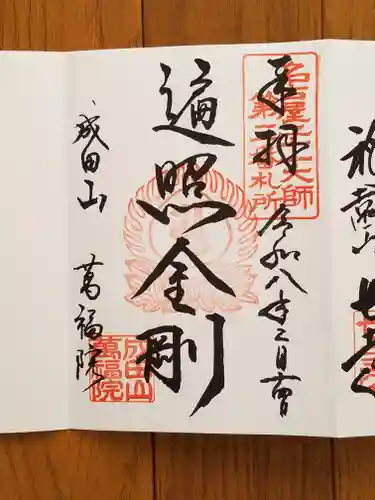 名古屋廿一大師
第二番札所
奉拝
令和八年二月
遍照金剛
成田山
萬福院
成田山
萬福院